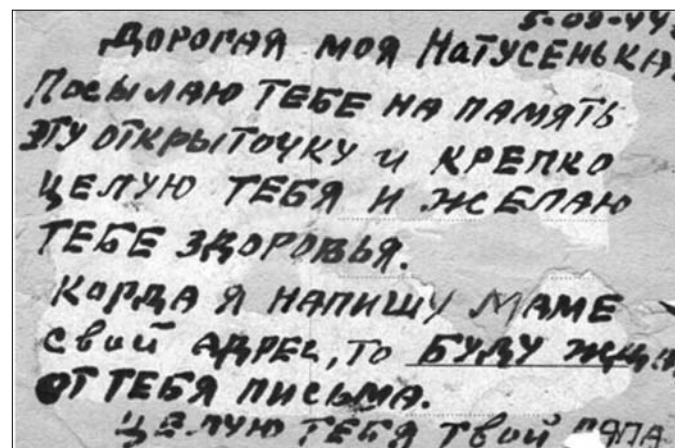 5-09-44
ДОРОГАЯ МОЯ НАТУСЕНЬКА.
ПОСЫЛАЮ ТЕБЕ НА ПАМЯТЬ
ЭТУ ОТКРЫТОЧКУ И КРЕПКО
ЦЕЛУЮ ТЕБЯ И ЖЕЛАЮ
ТЕБЕ ЗДОРОВЬЯ.
КОГДА Я НАПИШУ МАМЕ
СВОЙ АДРЕС, ТО БУДУ
ОТ ТЕБЯ ПИСЬМА.
ЦЕЛУЮ ТЕБЯ ТВОЙ ПАПА